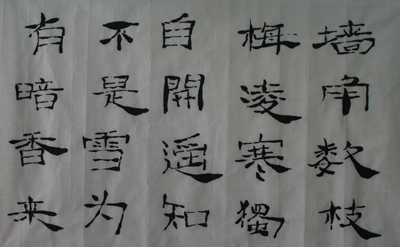 墙角数枝
梅凌寒獨
自開遥知
不是雪为
有暗香来